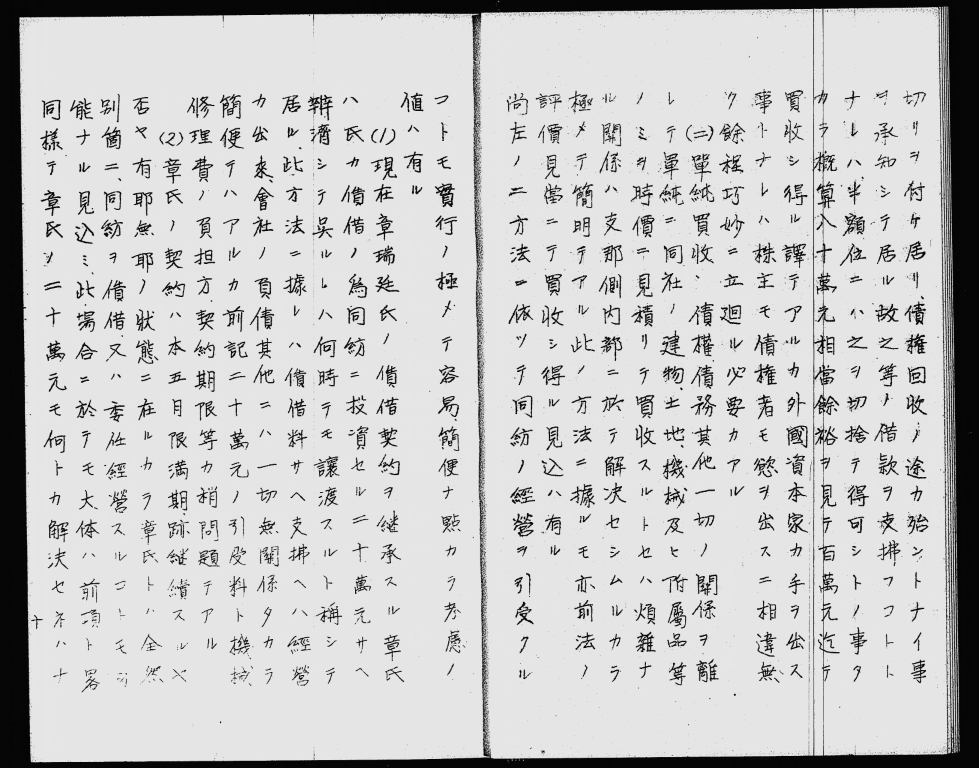 切リヲ付ケ居リ債権回收ノ途カ殆ントナイ事
ヲ承知シテ居ル故之等ノ借款ヲ支拂フコトト
ナレハ半額位ニハ之ヲ切捨テ得可シトノ事タ
カラ概算八十萬元相當餘裕ヲ見テ百萬元迄テ
買收シ得ル譯テアルカ外國資本家カ手ヲ出ス
事トナレハ株主モ債権者モ慾ヲ出スニ相違無
ク餘程巧妙ニ立廻ル必要カアル
(二)單純買收、債權債務其他一切ノ關係ヲ離
レテ單純ニ同社ノ建物、土地、機械及ヒ附屬品等
ノミヲ時價ニ見積リテ買收スルトセハ煩雜ナ
ル關係ハ支那側内部ニ於テ解决セシムルカラ
極メテ簡明テアル此ノ方法ニ據ルモ亦前法ノ
評價見當ニテ買收シ得ル見込ハ有ル
尚左ノ二方法ニ依ツテ同紡ノ經營ヲ引受クル
コトモ實行ノ極メテ容易、簡便ナ點カラ考慮ノ
値ハ有ル
(1)現在章瑞廷氏ノ借借契約ヲ继承スル章氏
ハ氏カ借借ノ為同紡ニ投資セル二十萬元サヘ
辨濟シテ呉ルレハ何時テモ讓渡スルト稱シテ
居ル、此方法ニ據レハ借借料サヘ支拂ヘハ經營
カ出來、會社ノ負債其他ニハ一切無關係タカラ
簡便テハアルカ前記二十萬元ノ引受料ト機械
修理費ノ負担方、契約期限等カ稍問題テアル
(2)章氏ノ契約ハ本五月限満期、跡継續スルヤ
否ヤ有耶無耶ノ状態ニ在ルカラ章氏トハ全然
別箇ニ、同紡ヲ借借又ハ委任經營スルコトモ可
能ナル見込ミ、此場合ニ於テモ大体ハ前項ト畧
同様テ章氏ノ二十萬元モ何トカ解决セネハナ